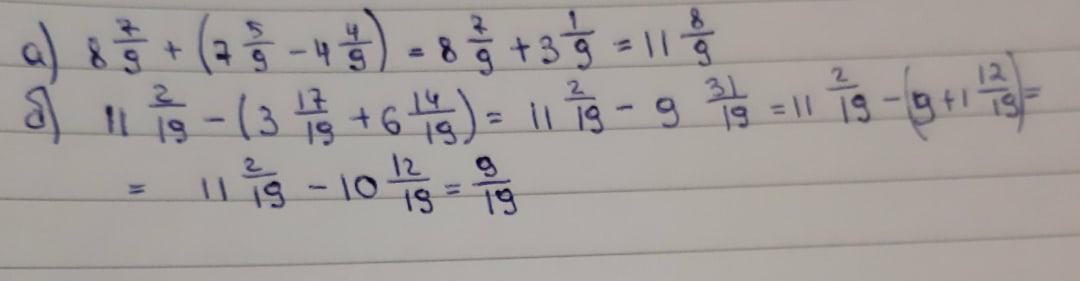 а) 8 7/9 + (7 5/9 - 4 4/9) = 8 7/9 + 3 1/9 = 11 8/9
б) 11 2/19 - (3 17/19 + 6 14/19) = 11 2/19 - 9 31/19 = 11 2/19 - (9 + 1 12/19) =
= 11 2/19 - 10 12/19 = 9/19